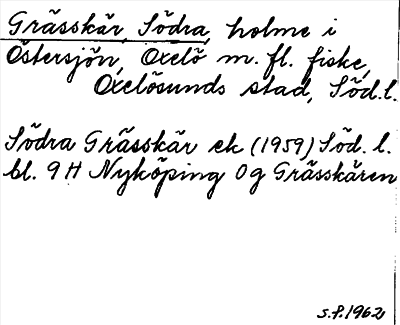 Grässkär, Södra, holme i
Östersjön, Oxelö m. fl. fiske,
Oxelösunds stad, Söd. l.
Södra Grässkär ek (1959) Söd. l.
bl. 9 H Nyköping Og Grässkären
S.P. 1962